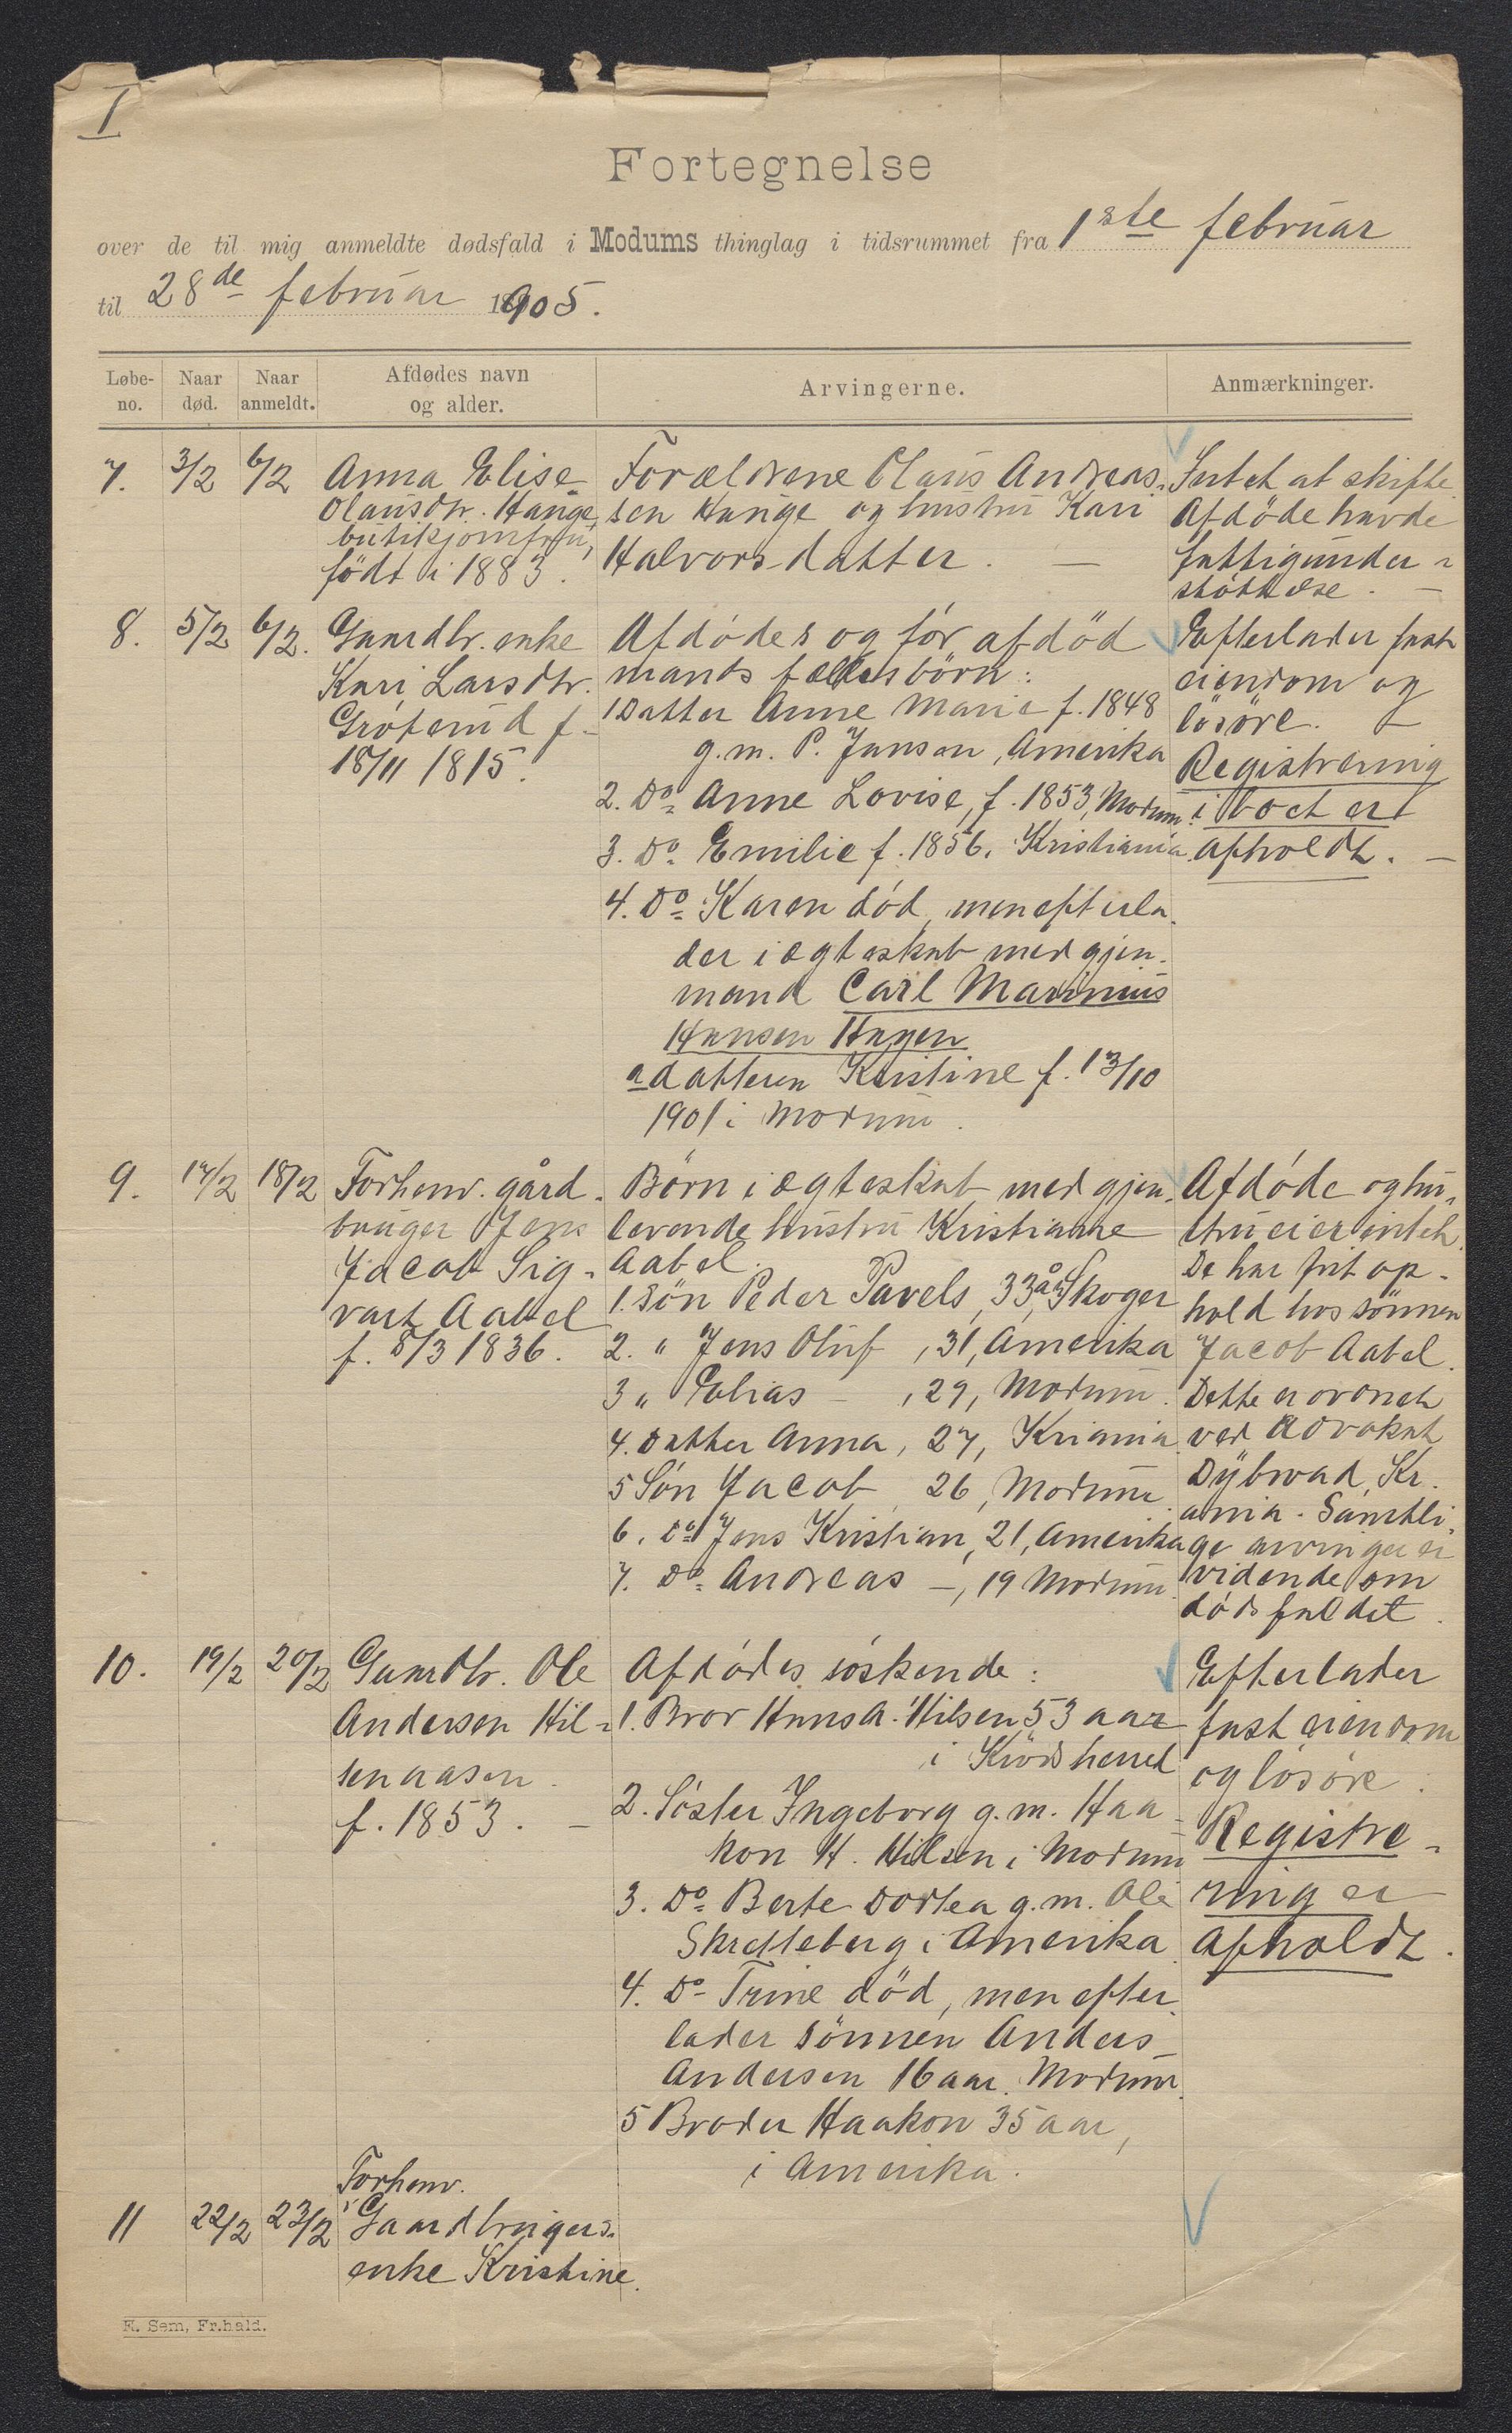 I
Fortegnelse
over de til mig anmeldte dødsfald i Modums thinglag i tidsrummet fra 1ste februar
til 28de februar 1905.
Løbe-no.
Naar død.
Naar anmeldt.
Afdødes navn og alder.
Arvingerne.
Anmærkninger.
7.
3/2
6/2
Anna Elise
Olausdtr. Hauge,
butikjomfru,
født i 1883.
Forældrene Olaus Andreas-
sen Hauge og hustru Kari
Halvorsdatter. —
Intet at skifte
Afdöde havde
fattigunder-
støttelse. —
8.
5/2
6/2.
Gaardbr. enke
Kari Larsdtr.
Gröterud f.
18/11 1815.
Afdödes og för afdöd
mands fællesbörn:
1 Datter Anne Marie f. 1848
g.m. P. Jansen, Amerika
2. Do Anne Lovise, f. 1853, Modum.
3. Do Emilie f. 1856. Kristiania
4. Do Karen död, men efterla-
der i ægteskab med gjen-
mand Carl Marinius
Hansen Hagen
a datteren Kristine f. 13/10
1901 i Modum.
Efterlader fast
eiendom og
lösöre. —
Registrering
i boet er
afholdt. —
9.
14/2
18/2
Forhenv. gård-
bruger Jens
Jacob Sig-
vart Aabel
f. 8/3 1836.
Börn i ægteskab med gjen-
levende hustru Kristiane
Aabel.
1. Sön Peder Pavels, 33 år, Skoger
2. " Jens Oluf, 31, Amerika
3 " Elias —, 29, Modum.
4. Datter Anna, 27, Kriania
5 Sön Jacob, 26, Modum.
6. Do Jens Kristian, 21, Amerika
7. Do Andreas —, 19 Modum.
Afdöde og hu-
stru eier intet.
De har frit op-
hold hos sönnen
Jacob Aabel.
Dette er ordnet
ved Advokat
Dybwad, Kr.
ania. Samtli-
ge arvinger er
vidende om
dödsfaldet.
10.
19/2
20/2
Gaardbr. Ole
Andersen Hil-
senaasen.
f. 1853. —
Afdödes söskende:
1. Bror Hans A. Hilsen 53 aar
i Krödsherred
2. Söster Ingeborg g.m. Haa-
kon H. Hilsen i Modum
3. Do Berte Dortea g.m. Ole
Skretteberg i Amerika.
4. Do Trine död, men efter-
lader sönnen Anders
Andersen 16 aar. Modum.
5 Broder Haakon 35 aar,
i Amerika.
Efterlader
fast eiendom
og lösöre.
Registre-
ring er
afholdt.
11
22/2
23/2
Forhenv.
Gaardbrugers-
enke Kristine
E. Sem, Fr.hald.